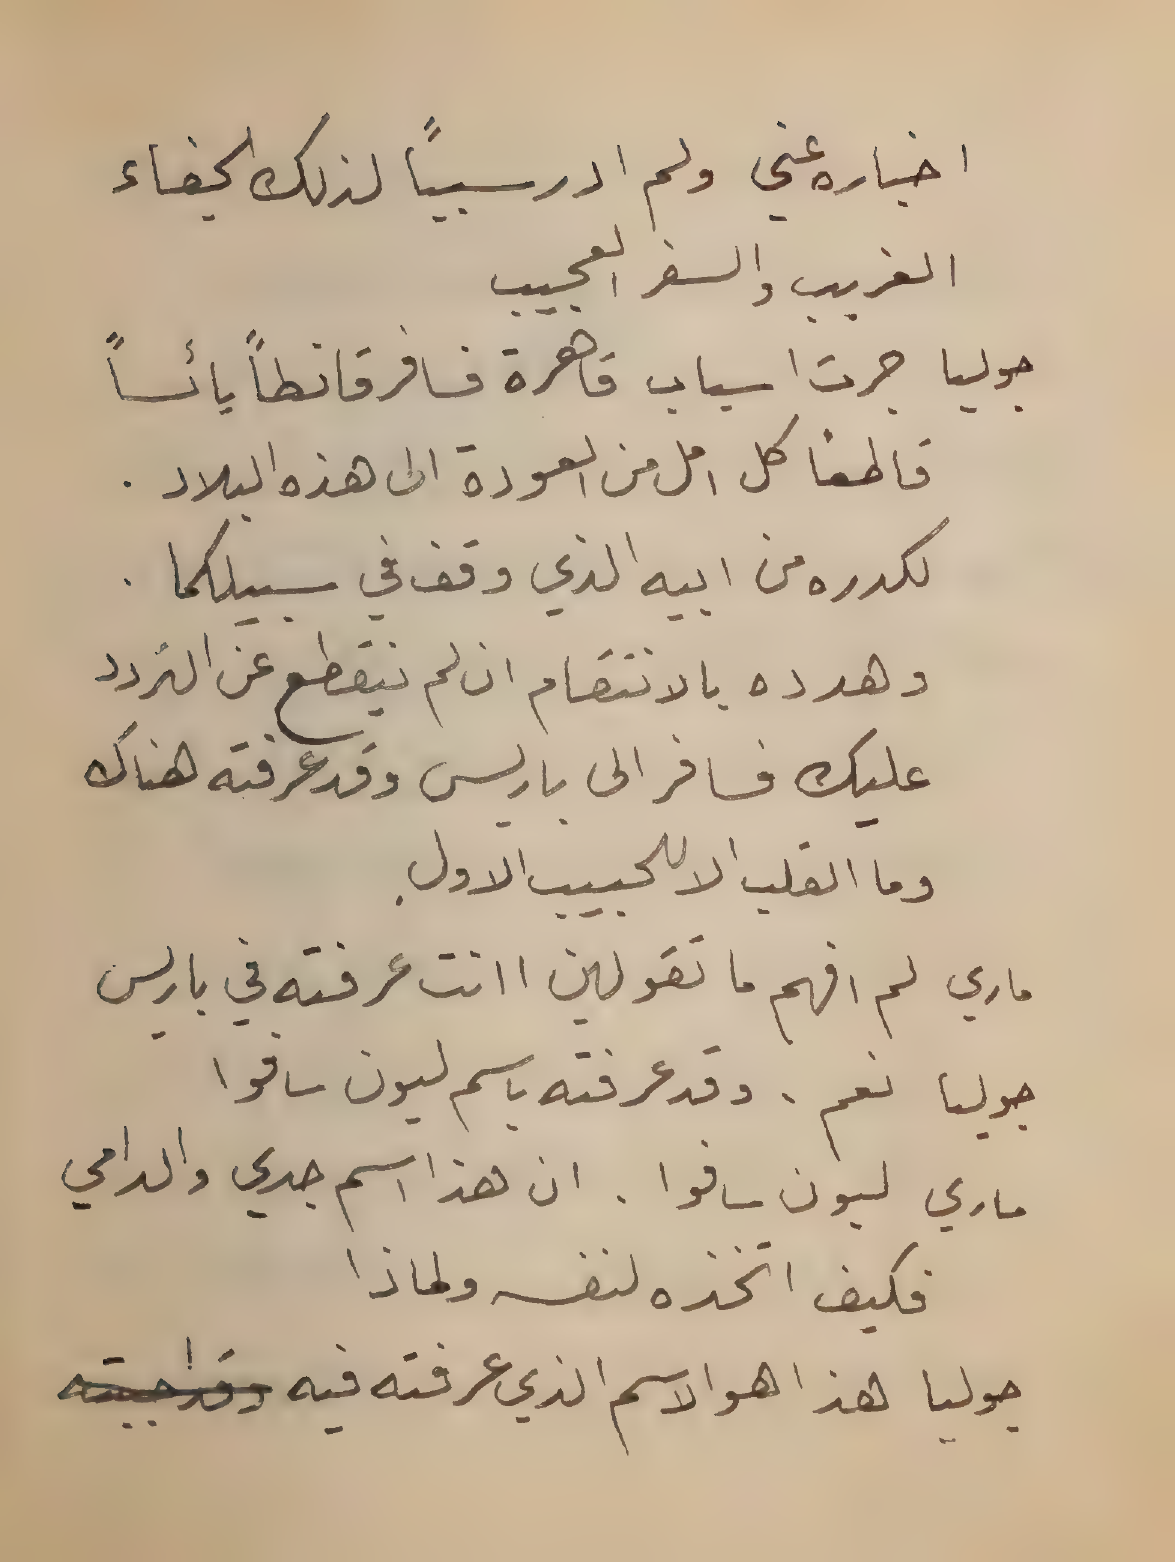 اخباره عني ولم ادر سبباً لذلك الجفاء
الغريب والسفر العجيب
جوليا جرت اسباب قاهرة فسافر قانطاً يائساً
قاطعاً كل امل من العودة الى هذه البلاد .
لكدره من ابيه الذي وقف في سبيلكما .
وهدده بالانتقام ان لم ينقطع عن التردد
عليك فسافر الى باريس وقد عرفته هناك
وما القلب الا للحبيب الاول .
ماري لم افهم ما تقولين اانت عرفته في باريس
جوليا نعم . وقد عرفته باسم ليون سافوا
ماري ليون سافوا . ان هذا اسم جدي والد امي
فكيف اتخذه لنفسه ولماذا
جوليا هذا هو الاسم الذي عرفته فيه وقد احببته